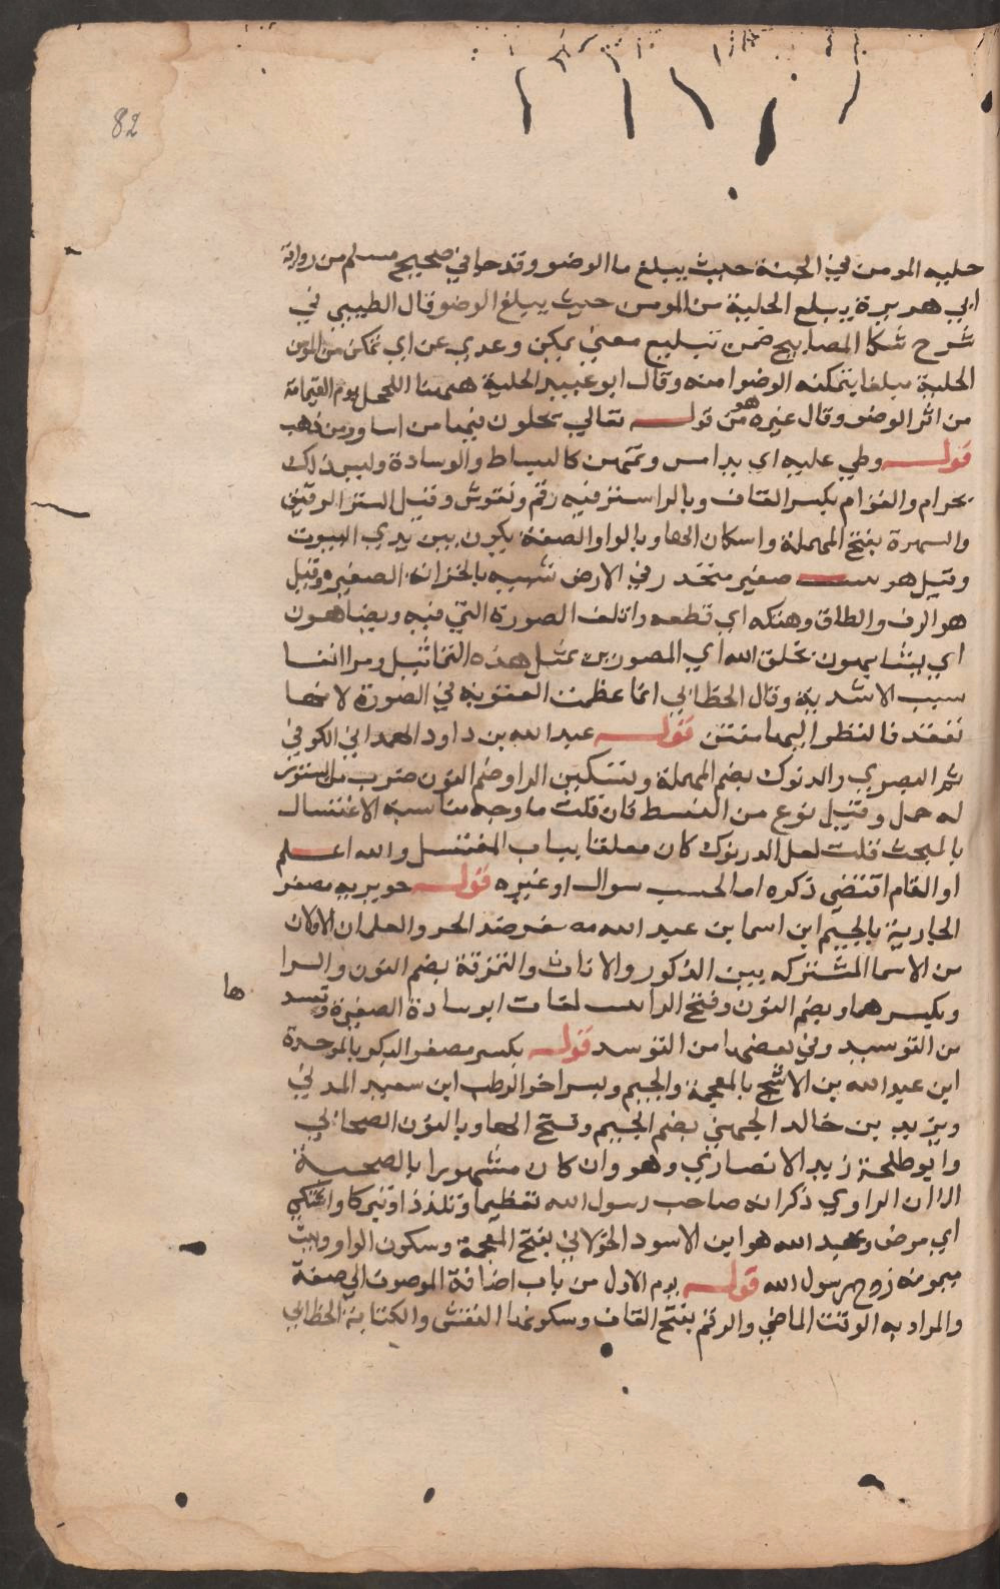 82
حليه المومن في الجنة حيث يبلغ ما الوضو وقد جا في صحيح مسلم من رواية
ابي هريرة يبلغ الحلية من المومن حيث يبلغ الوضو قال الطيبي في
شرح شكا المصابيح ضمن تبليغ معني يمكن وعدي عن اي تتمكن من المومن
الحلية مبلغا يتمكنه الوضوا منه وقال ابو عبيد الحلية ههنا التحجيل يوم القيامة
من اثر الوضو وقال غيره هو من قوله تعالي يحلون فيها من اساور من ذهب
قوله وطي عليه اي يداس ويمتهن كالبساط والوسادة وليس ذلك
بحرام والقرام بكسر القاف وبالرا ستر فيه رقم ونقوش وقيل الستر الرقيق
والسهوة بفتح المهملة واسكان الها وبالواو الصفة يكون بين يدي البيوت
وقيل هو صغير متخذ في الارض شبيه بالخزانة الصغيرة وقيل
هو الرف والطاق وهتكه اي قطعه واتلف الصورة التي فيه ويضاهون
اي يشابهون بخلق الله اي المصورين بمثل هذه التماثيل ومرانفا
سبب الاشدية وقال الخطابي انما عظمت العقوبة في الصورة لانها
تعبد فالنظر اليها مفتن قوله عبد الله بن داود الهمداني الكوفي
ثم البصري والدنوك بضم المهملة وتسكين الرا وضم النون ضرب من الستور
له خمل وقيل نوع من البسط فان قلت ما وجه مناسبة الاغتسال
بالمبحث قلت لعل الدرنوك كان معلقا بباب المغتسل والله اعلم
او المقام اقتضي ذكره اما لحسب سوال او غيره قوله جويريه مصغر
الجارية بالجيم ابن اسما بن عبيد الله ضد الحر والعلمان الاولان
من الاسما المشتركه بين الذكور والاناث والنمرقة بضم النون والرا
وبكسرهما وبضم النون وفتح الرا لغات الوسادة الصغيرة وتوسد
ها
من التوسيد وفي بعضها من التوسد قوله بكير مصغر البكر بالموحدة
ابن عبد الله بن الاشج بالمعجمة والجيم وبسر اخو الرطب ابن سعيد المدني
وزيد بن خالد الجهني بضم الجيم وفتح الها وبالنون الصحابي
وابو طلحة زيد الانصاري وهو وان كان مشهورا بالصحبة
الا ان الراوي ذكر انه صاحب رسول الله تعظيما وتلذذا وتبركا واشتكي
اي مرض وعبيد الله هو ابن الاسود الخولاني بفتح المعجمة وسكون الواو ربيب
ميمونه زوج رسول الله قوله يوم الاول من باب اضافة الموصوف الي صفة
والمراد به الوقت الماضي والرقم بفتح القاف وسكونها النقش والكتابة الخطابي